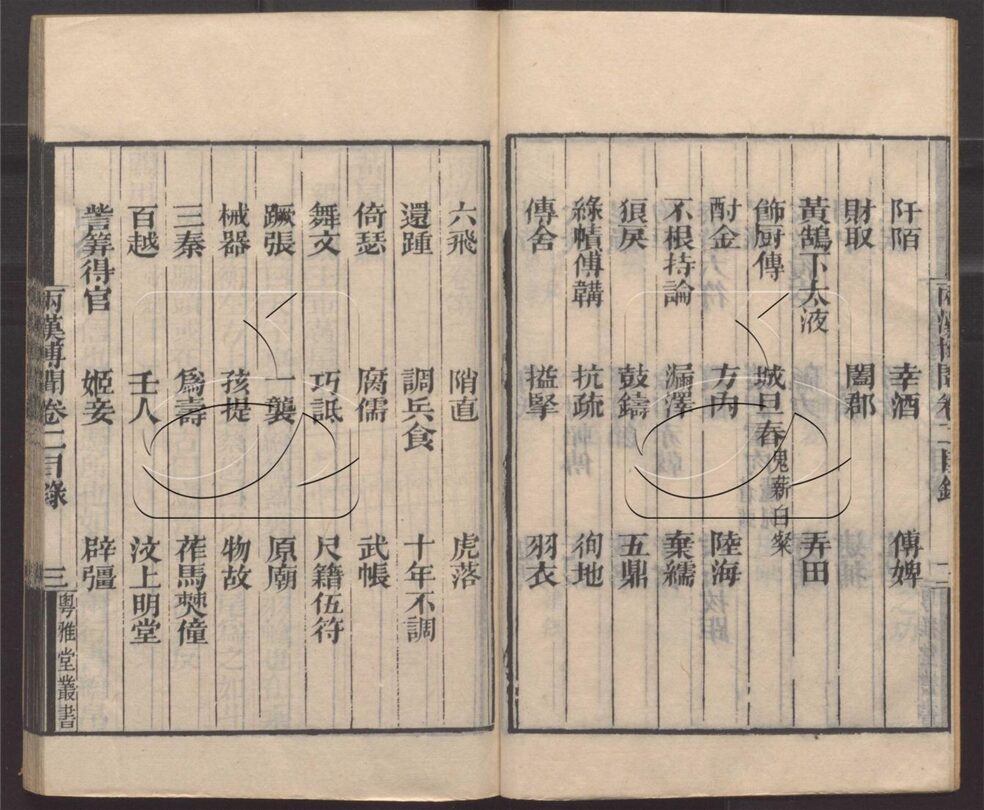 阡陌 幸酒 傅婢
財取 闔郡
黃鵠下太液 弄田
飾厨傳 城旦舂鬼薪白粲
酎金 方内 陸海
不根持論 漏澤 棄繻
狠戾 鼓鑄 五鼎
綠幘傅韝 抗疏 徇地
傳舍 搤掔 羽衣
六飛 陗直 虎落
還踵 調兵食 十年不調
倚瑟 腐儒 武帳
舞文 巧詆 尺籍伍符
蹶張 一襲 原廟
械器 孩提 物故
三秦 爲壽 莋馬僰僮
百越 壬人 汶上明堂
訾筭得官 姬妾 辟彊
兩漢博聞卷二目錄 三 粤雅堂叢書